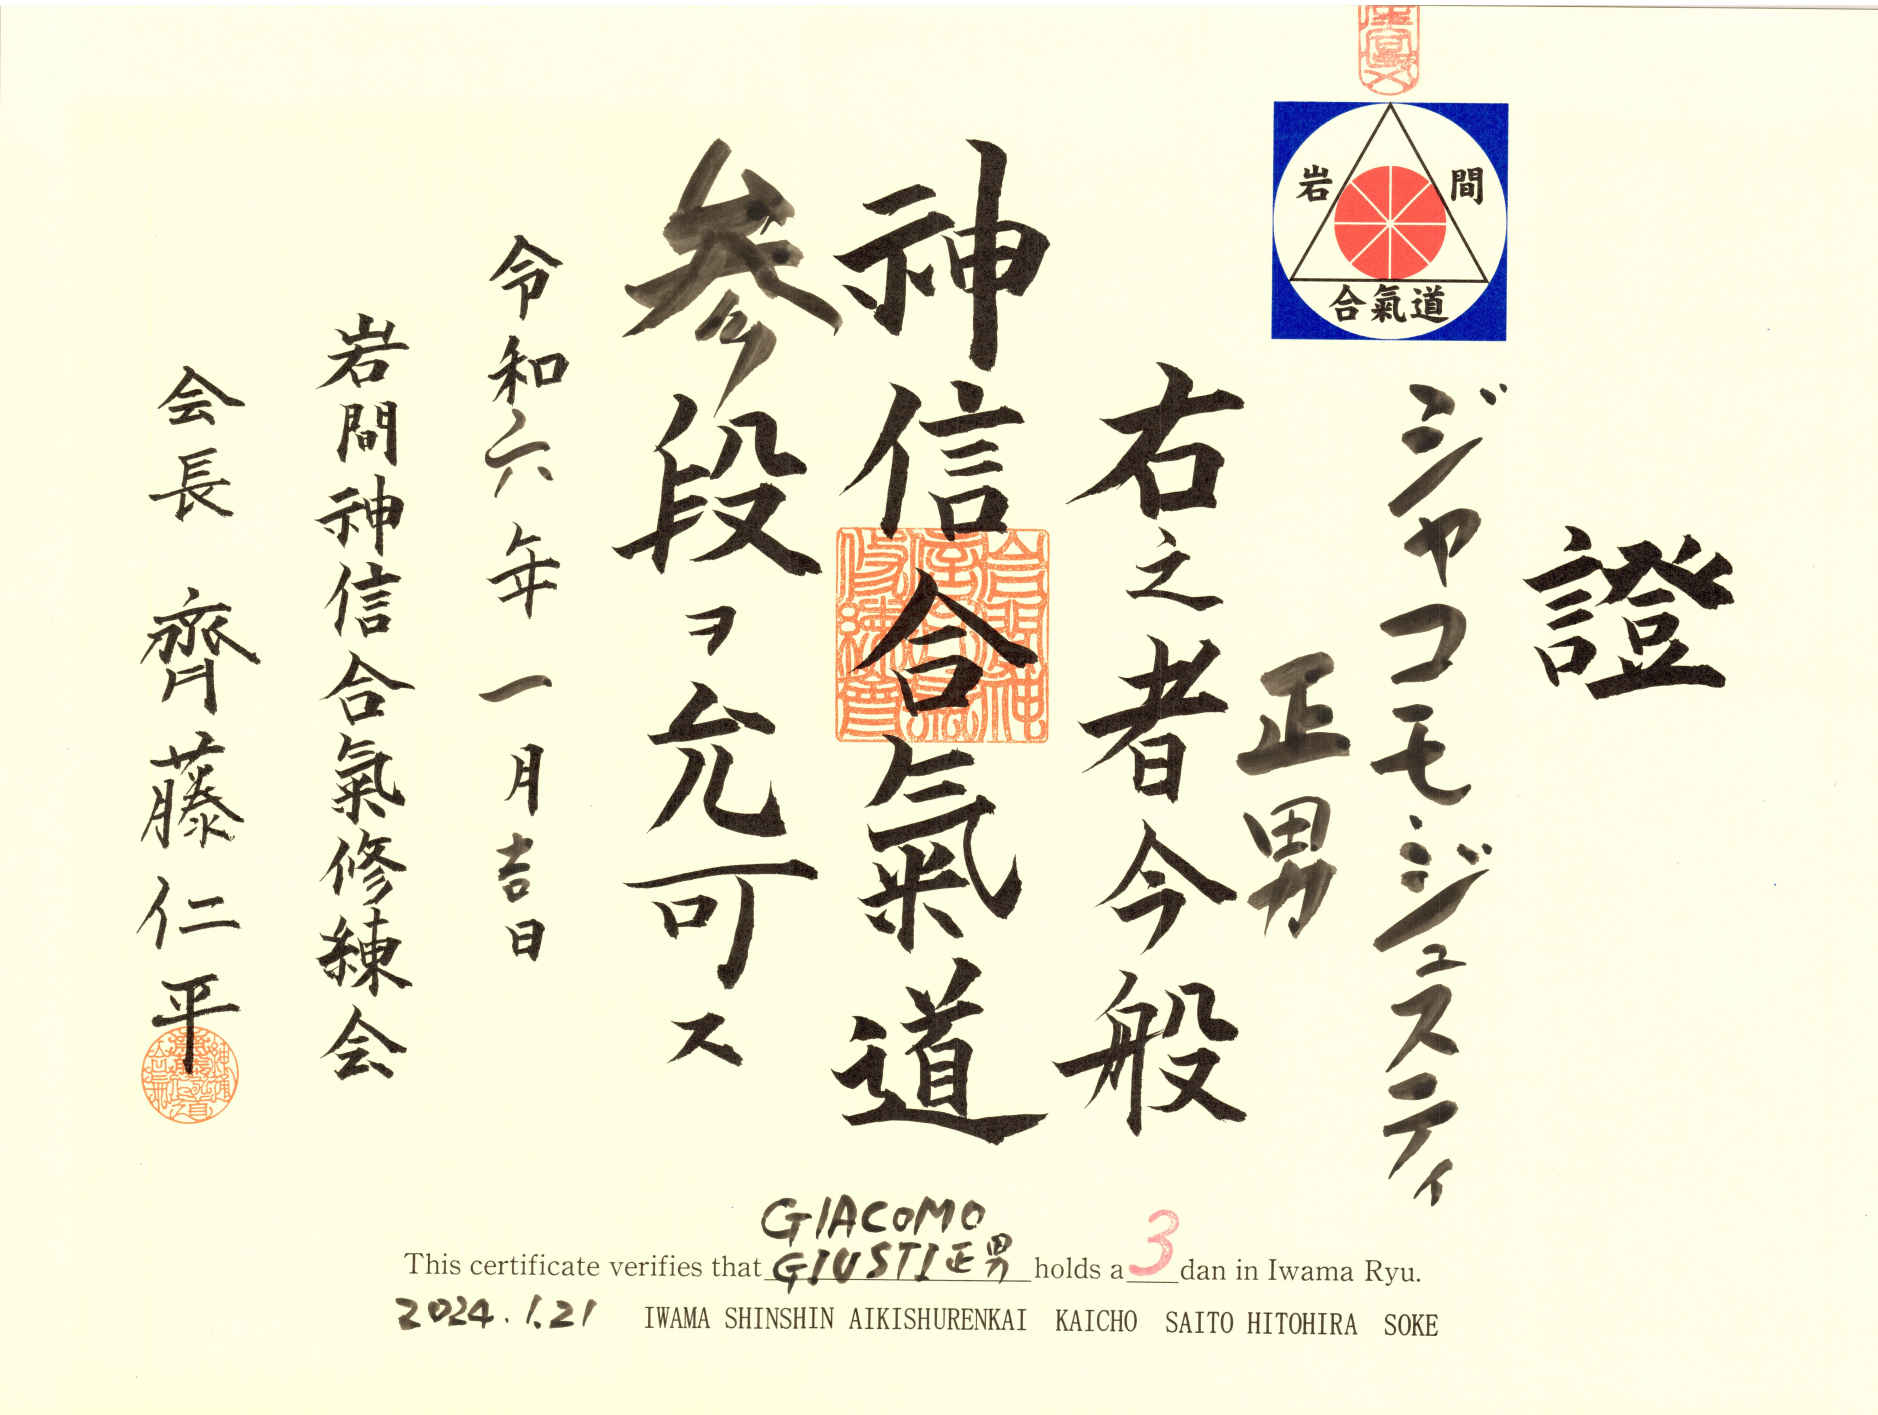 岩間
合氣道
證
ジャコモ・ジュスティ
正男
右之者今般
神信合氣道
參段ヲ允可ス
令和六年一月吉日
岩間神信合氣修練会
会長 齊藤仁平
GIACOMO
This certificate verifies that GIUSTI 正男 holds a 3 dan in Iwama Ryu.
2024.1.21 IWAMA SHINSHIN AIKISHURENKAI KAICHO SAITO HITOHIRA SOKE